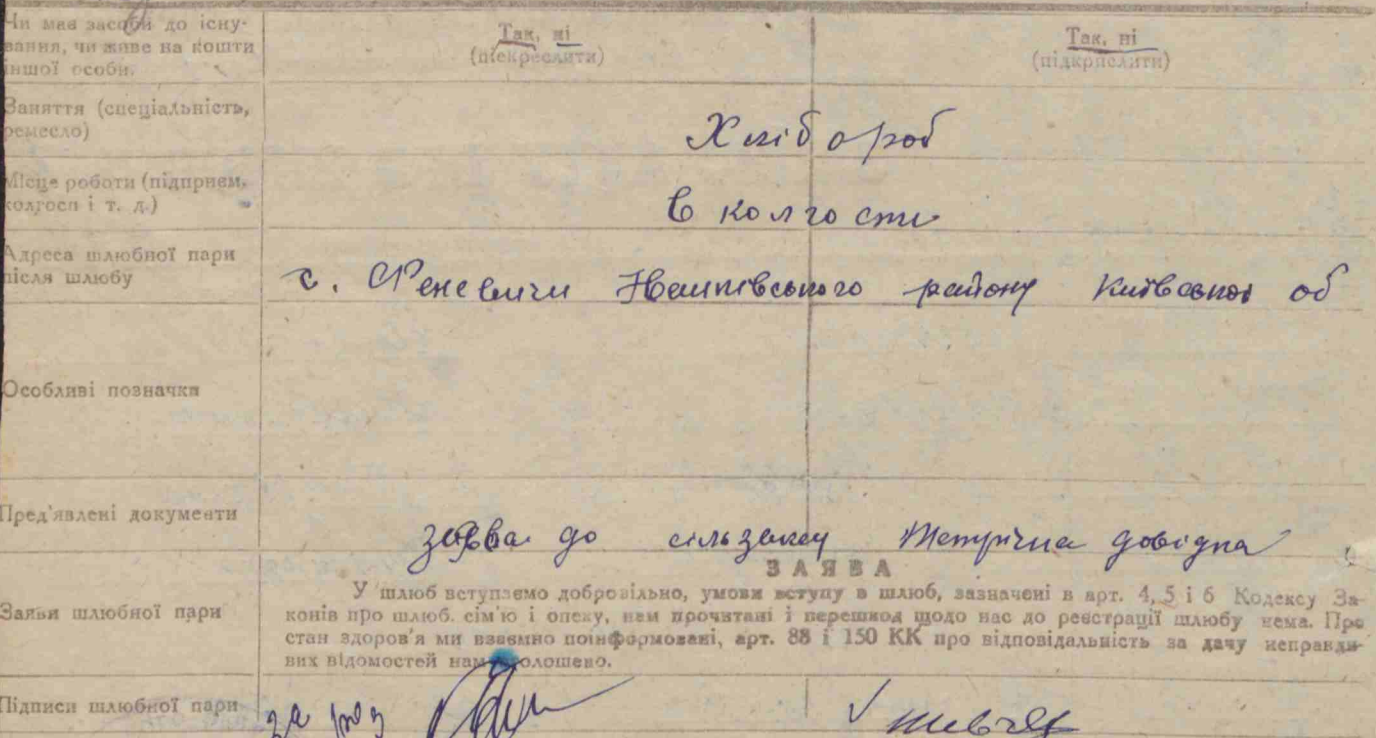 Чи має засоби до існу-
вання, чи живе на кошти
іншої особи.
Так, ні
(підкреслити)
Так, ні
(підкряслити)
Заняття (спеціальність,
ремесло)
Хлібороб
Місце роботи (підприєм.
колгосп і т. д.)
в колгоспі
Адреса шлюбної пари
після шлюбу
с. Феневичи району Київської об
Особливі позначки
Пред'явлені документи
заява до Метрична довідка
ЗАЯВА
Заяви шлюбної пари
У шлюб вступаємо добровільно, умови вступу в шлюб, зазначені в арт. 4, 5 і 6 Кодексу За-
конів про шлюб. сім'ю і опеку, нам прочитані і перешкод щодо нас до реєстрації шлюбу нема. Про
стан здоров'я ми взаємно поінформовані, арт. 88 і 150 КК про відповідальність за дачу неправди-
вих відомостей нам оголошено.
Підписи шлюбної пари
за